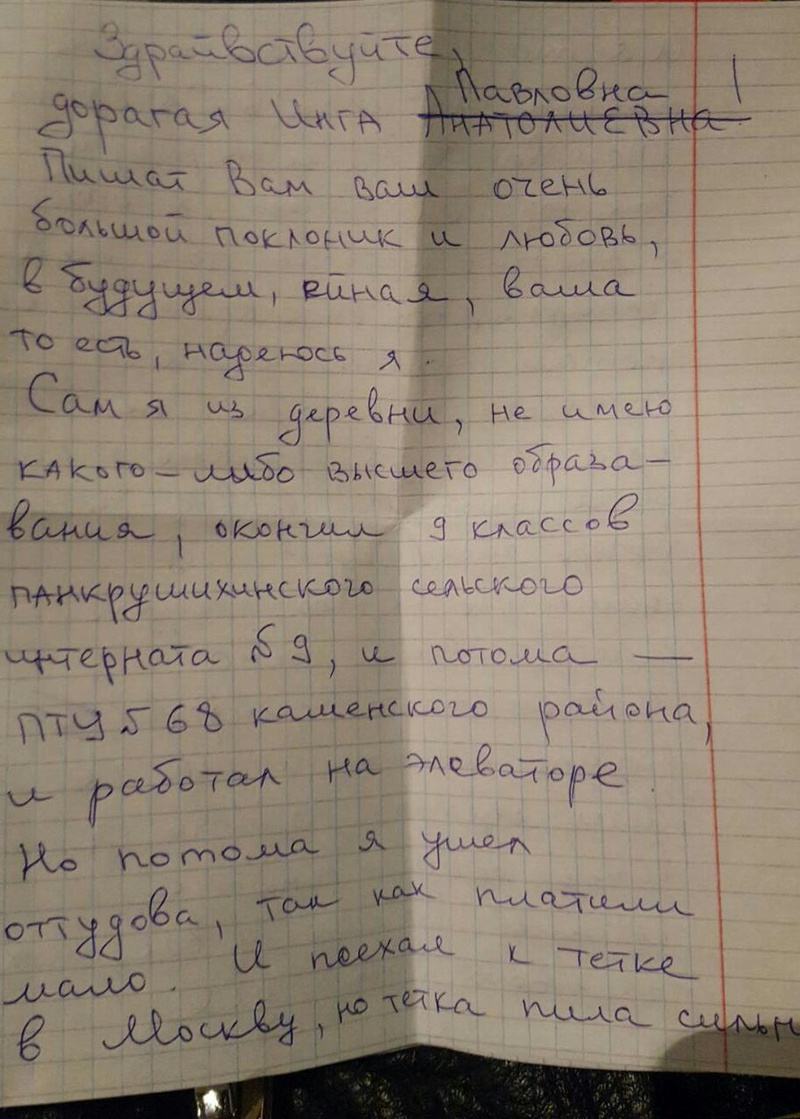 Здрайвствуйте,
Павловна !
дорогая Инга Анатолиевна
Пишат Вам ваш очень
большой поклоник и любовь,
в будущем, ейная, ваша
то есть, надеюсь я.
Сам я из деревни, не имею
какого-либо высшего образа-
вания, окончил 9 классов
панкрушихинского сельского
интерната №9, и потома —
ПТУ №68 каменского района,
и работал на элеваторе.
Но потома я ушел
оттудова, так как платили
мало. И поехал к тетке
в Москву, но тетка пила сильн